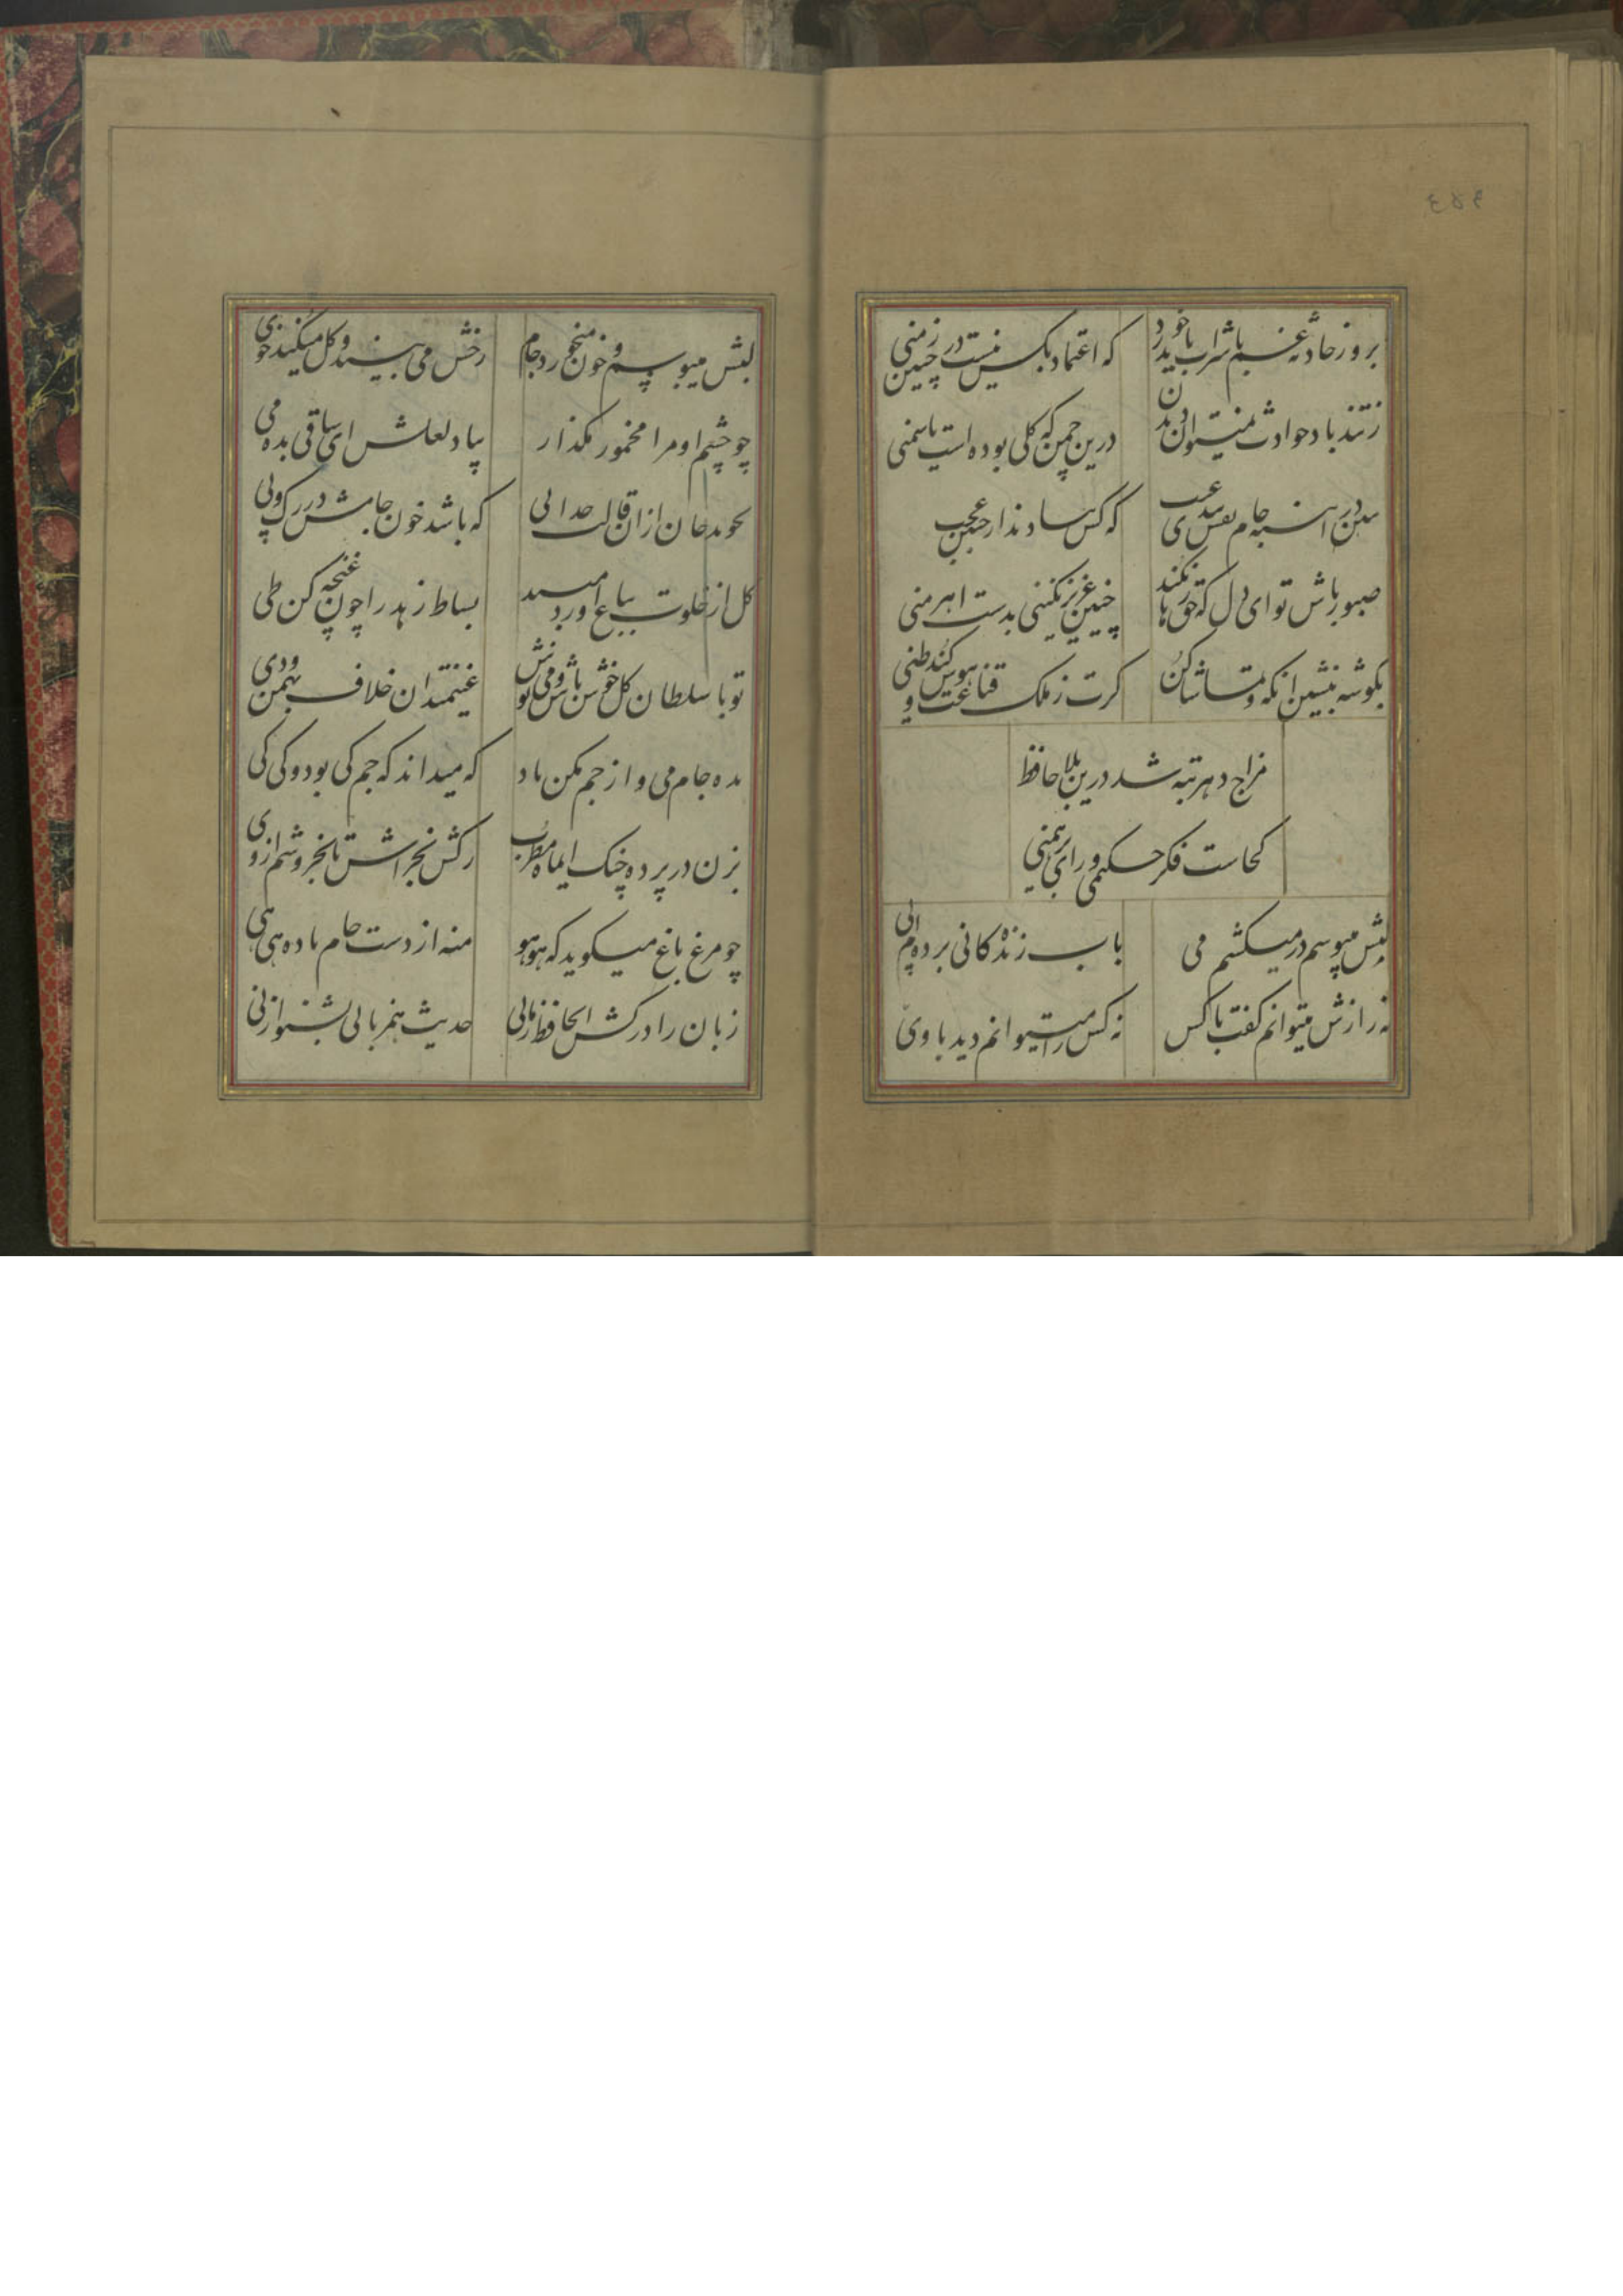 ۳۸۳
بروز حادثه غم با شراب باید خورد
که اعتماد بکس نیست در چنین زمنی
ز تند باد حوادث نمیتوان دیدن
درین چمن که کلی بوده است یا سمنی
ببین در اینه جام نقش بندی غیب
که کس بیاد ندارد چنین عجب
صبور باش تو ای دل که حق رها نکند
چنین عزیز نکینی بدست اهرمنی
بکوشه بنشین انکه و تماشا کن
کرت ز ملک قناعت و هوس کند طنی
مزاج دهر تبه شد درین بلا حافظ
کجاست فکر حکیمی و رای برهمنی
لبش میبوسم درمیکشم می
باب زندکانی برده ام پی
نه رازش میتوانم کفت با کس
نه کس را میتوانم دید با وی
لبش میبوسم و خون میخورد جام
رخش می بیند و کل میکند خوی
چو چشم او مرا مخمور مکذار
بیاد لعلش ای ساقی بده می
نجوید جان از ان قالب جدائی
که باشد خون جامش در رک و پی
کل از خلوت بباغ اورد مسند
بساط زهد را چون غنچه کن طی
تو با سلطان کل خوش باش و می نوش
غنیمتدان خلاف بهمن و دی
بده جام می و از جم مکن یاد
که میداند که جم کی بود و کی کی
بزن در پرده چنک ایماه مطرب
رکش بخراش تا بخروشم از وی
چو مرغ باغ میکوید که هو هو
منه از دست جام باده هی هی
زبان را درکش ایحافظ زمانی
حدیث بیزبانی بشنو از نی